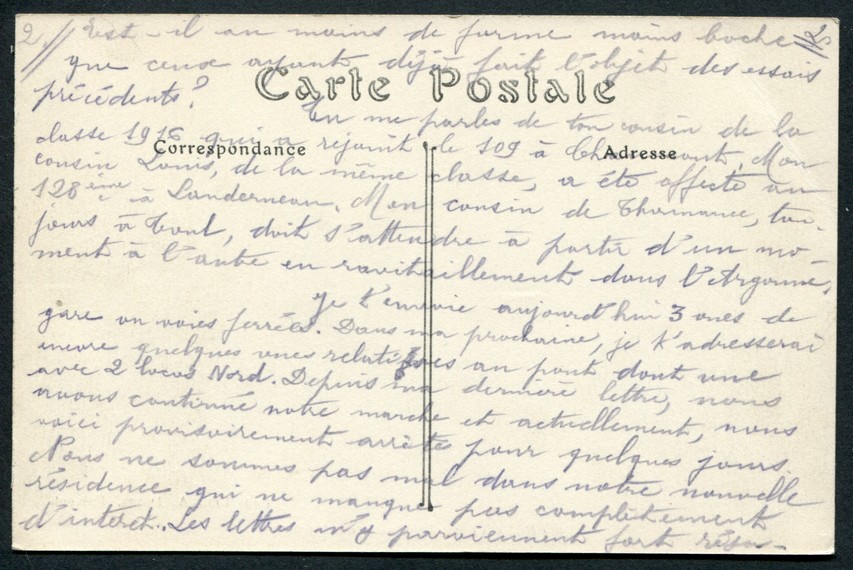 2 // Est-il au moins de forme moins boche // 2
que ceux ayant déjà fait l'objet des essais
Carte Postale
précédents?
Tu me parles de ton cousin de la
classe 1916 qui a rejoint le 109 à Chaumont. Mon
Correspondance
Adresse
cousin Louis, de la même classe, a été affecté au
128ème à Landerneau. Mon cousin de Thomance, tou-
jours à Toul, doit s'attendre à partir d'un mo-
ment à l'autre en ravitaillement dans l'Argonne.
Je t'envoie aujourd'hui 3 vues de
gare ou voies ferrées. Dans ma prochaine, je t'adresserai
encore quelques vues relatives au pont dont une
avec 2 locos Nord. Depuis ma dernière lettre, nous
avons continué notre marche et actuellement, nous
voici provisoirement arrêtés pour quelques jours.
Nous ne sommes pas mal dans notre nouvelle
résidence qui ne manque pas complètement
d'intérêt. Les lettres m'y parviennent fort régu-